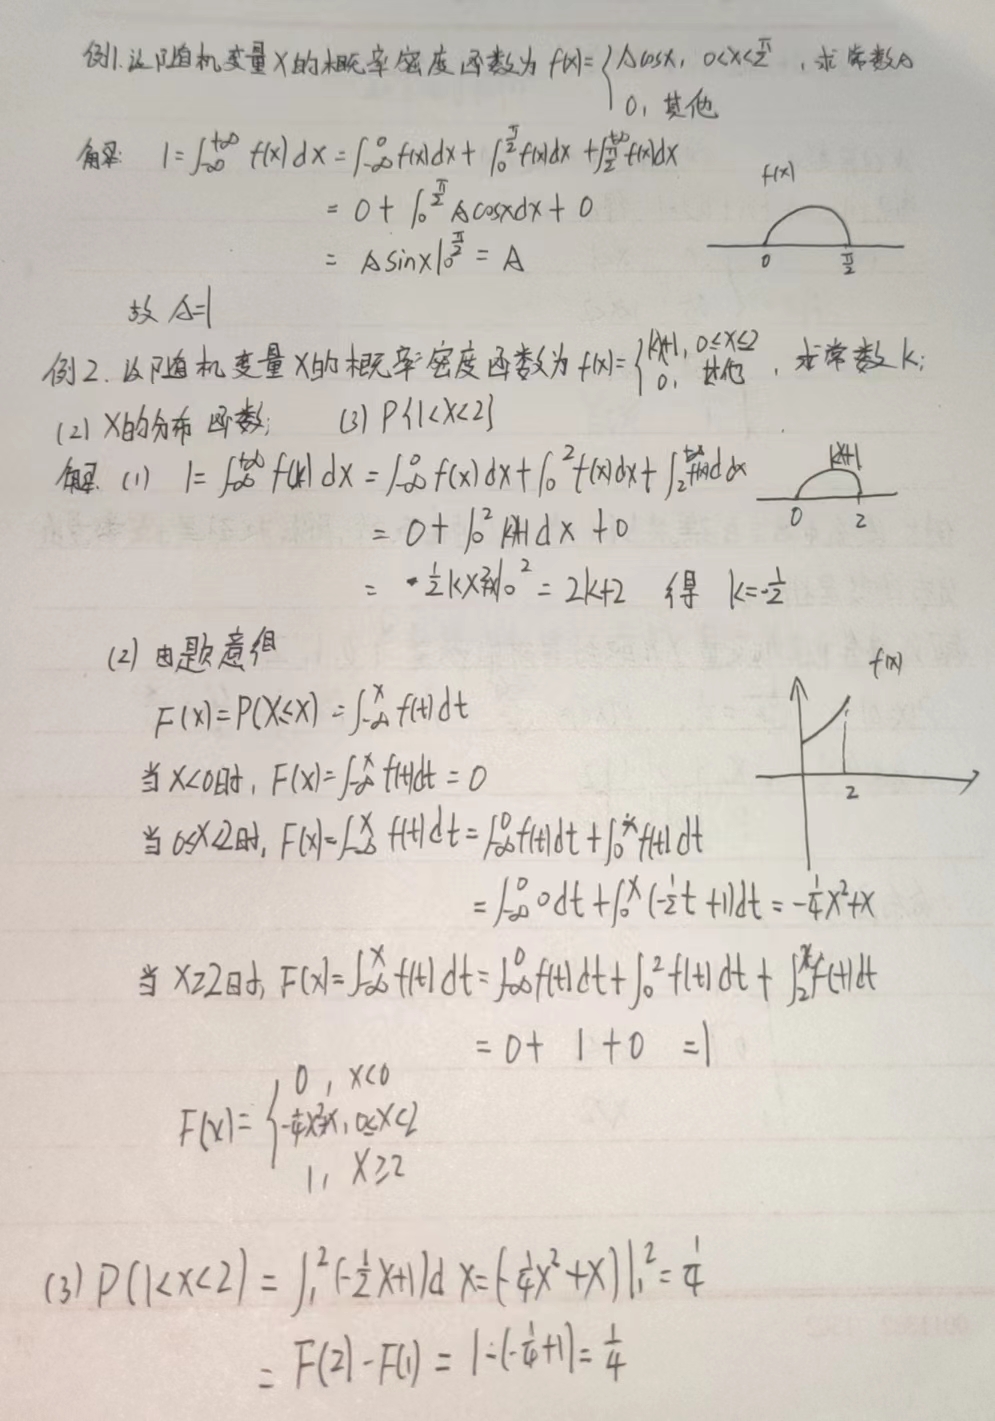 例1.设随机变量X的概率密度函数为 f(x)={Acosx, 0<x<π/2 , 求常数A
0, 其他
解: 1=∫_{-∞}^{+∞} f(x)dx=∫_{-∞}^{0} f(x)dx+∫_{0}^{π/2} f(x)dx+∫_{π/2}^{+∞} f(x)dx
f(x)
=0+∫_{0}^{π/2} Acosxdx+0
=Asinx|_{0}^{π/2}=A
0 π/2
故 A=1
例2.设随机变量X的概率密度函数为f(x)={kx+1, 0≤x≤2 , 求常数k;
0, 其他
(2) X的分布函数; (3) P{1<X<2}
解: (1) 1=∫_{-∞}^{+∞} f(x)dx=∫_{-∞}^{0} f(x)dx+∫_{0}^{2} f(x)dx+∫_{2}^{+∞} f(x)dx
kx+1
0 2
=0+∫_{0}^{2} kx+1dx+0
=1/2kx²+x|_{0}^{2}=2k+2 得 k=-1/2
(2) 由题意得
f(x)
F(x)=P(X≤x)=∫_{-∞}^{x} f(t)dt
当x<0时, F(x)=∫_{-∞}^{x} f(t)dt=0
2
当0≤x<2时, F(x)=∫_{-∞}^{x} f(t)dt=∫_{-∞}^{0} f(t)dt+∫_{0}^{x} f(t)dt
=∫_{-∞}^{0} 0dt+∫_{0}^{x} (-1/2t+1)dt=-1/4x²+x
当x≥2时, F(x)=∫_{-∞}^{x} f(t)dt=∫_{-∞}^{0} f(t)dt+∫_{0}^{2} f(t)dt+∫_{2}^{x} f(t)dt
=0+1+0=1
0, x<0
F(x)={-1/4x²+x, 0≤x<2
1, x≥2
(3) P(1<x<2)=∫_{1}^{2} (-1/2x+1)dx=(-1/4x²+x)|_{1}^{2}=1/4
=F(2)-F(1)=1-(-1/4+1)=1/4